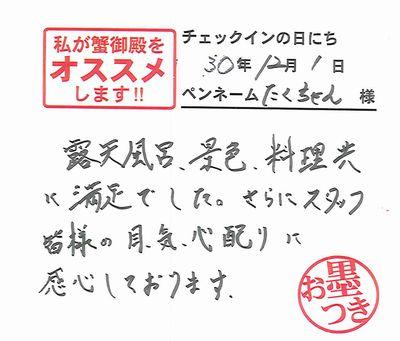 私が蟹御殿を
オススメ
します!!
チェックインの日にち
30年12月1日
ペンネーム たくちゃん 様
露天風呂、景色、料理共
に満足でした。さらにスタッフ
皆様の目、気、心配りに
感心しております。
お墨つき